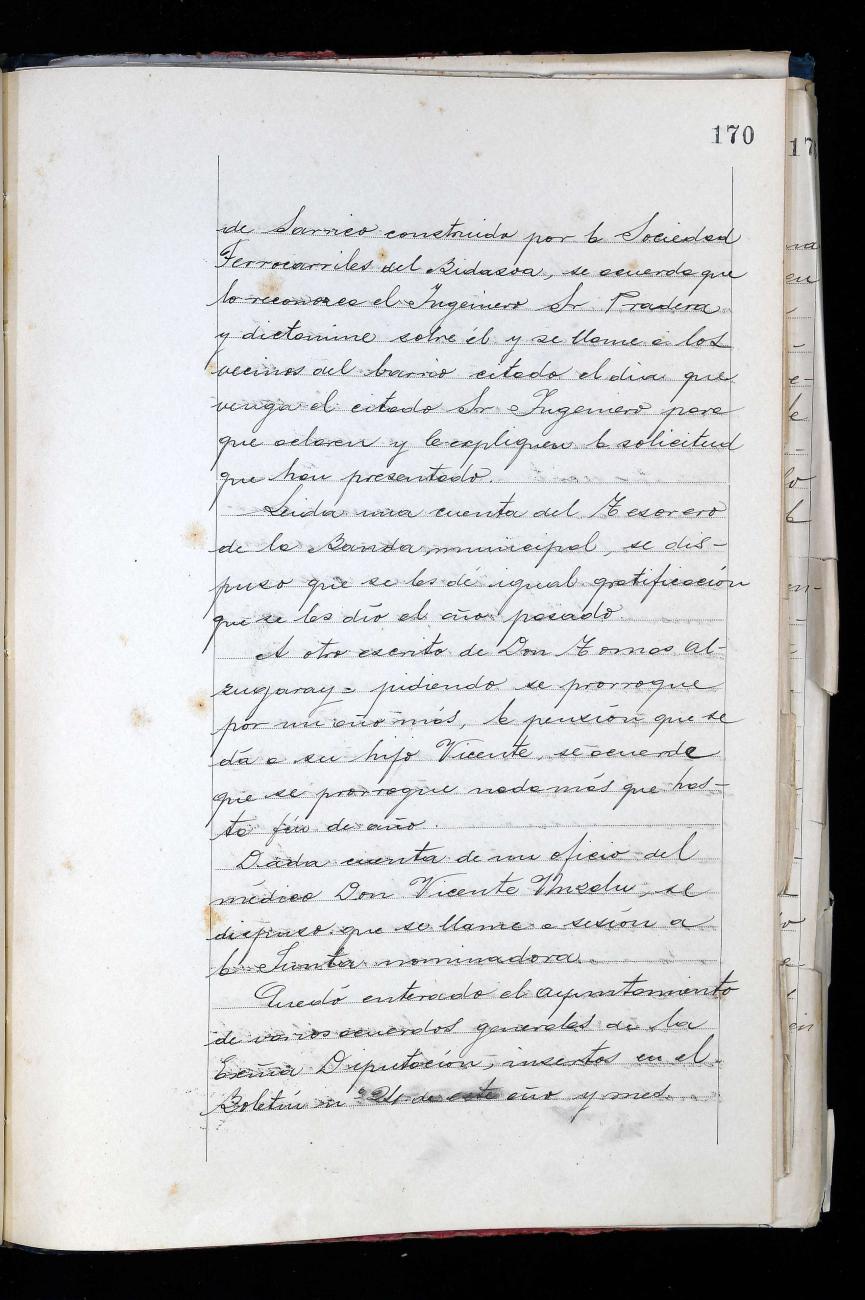 170
de Sarrico construido por la Sociedad
Ferrocarriles del Bidasoa, se acuerda que
lo reconozca el Ingeniero Sr Pradera
y dictamine sobre él y se llame a los
vecinos del barrio citado el dia que
venga el citado Sr Ingeniero para
que aclaren y le expliquen la solicitud
que han presentado.
Leida una cuenta del Tesorero
de la Banda municipal, se dis-
puso que se les dé igual gratificación
que se les dio el año pasado.
A otro escrito de Don Tomas Al-
zugaray = pidiendo se prorrogue
por un año más, la pensión que se
dá a su hijo Vicente, se acuerda
que se prorrogue nada más que has-
ta fin de año.
Dada cuenta de un oficio del
médico Don Vicente Unzalu, se
dispuso que se llame a sesión a
la Junta nominadora.
Quedó enterado el ayuntamiento
de varios acuerdos generales de la
Excma Diputación, insertos en el
Boletín nº 24 de este año y mes.